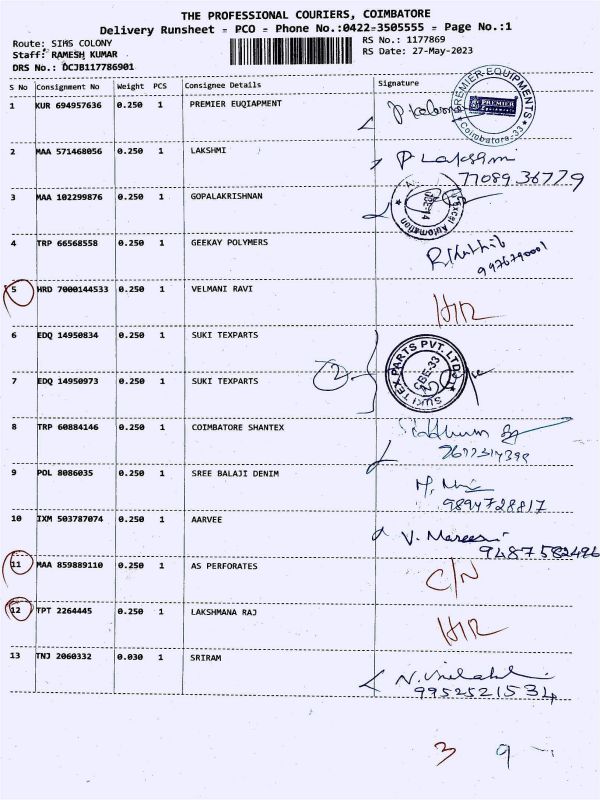 THE PROFESSIONAL COURIERS, COIMBATORE
Delivery Runsheet - PCO - Phone No.:0422-3505555 - Page No.:1
Route: SIHS COLONY
RS No.: 1177869
Staff: RAMESH KUMAR
RS Date: 27-May-2023
DRS No.: DCJB117786901
S No Consignment No Weight PCS Consignee Details Signature
1 KUR 694957636 0.250 1 PREMIER EUQIAPMENT
PREMIER EQUIPMENTS PREMIER Coimbatore-33
2 MAA 571468056 0.250 1 LAKSHMI P Lakshmi
7708936779
3 MAA 102299876 0.250 1 GOPALAKRISHNAN
Excel Automation CBE-14
4 TRP 66568558 0.250 1 GEEKAY POLYMERS
9976790001
5 HRD 7000144533 0.250 1 VELMANI RAVI
6 EDQ 14950834 0.250 1 SUKI TEXPARTS
2
SUKI TEX PARTS PVT. LTD. CBE-33
7 EDQ 14950973 0.250 1 SUKI TEXPARTS
8 TRP 60884146 0.250 1 COIMBATORE SHANTEX
9 POL 8086035 0.250 1 SREE BALAJI DENIM
9894728817
10 IXM 503787074 0.250 1 AARVEE
9487582496
11 MAA 859889110 0.250 1 AS PERFORATES C/N
12 TPT 2264445 0.250 1 LAKSHMANA RAJ
13 TNJ 2060332 0.030 1 SRIRAM
9952521534
3 9